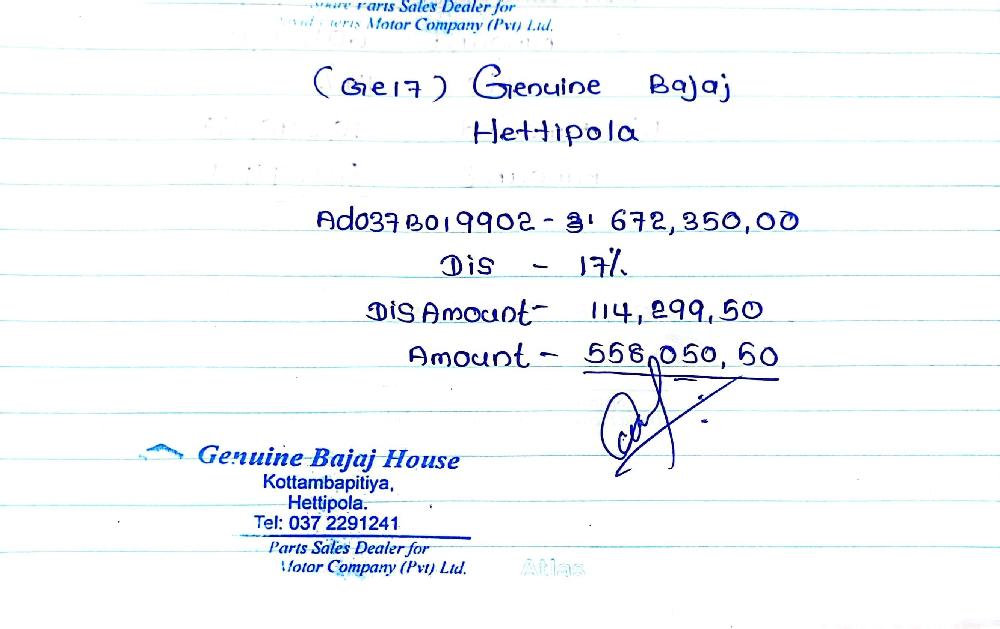 Parts Sales Dealer for
Motor Company (Pvt) Ltd.
(Ge17) Genuine Bajaj
Hettipola
Ad037B019902 - 31 672,350,00
Dis - 17%
Dis Amount - 114,299,50
Amount - 558,050,50
Genuine Bajaj House
Kottambapitiya,
Hettipola.
Tel: 037 2291241
Parts Sales Dealer for
Motor Company (Pvt) Ltd.
Atlas